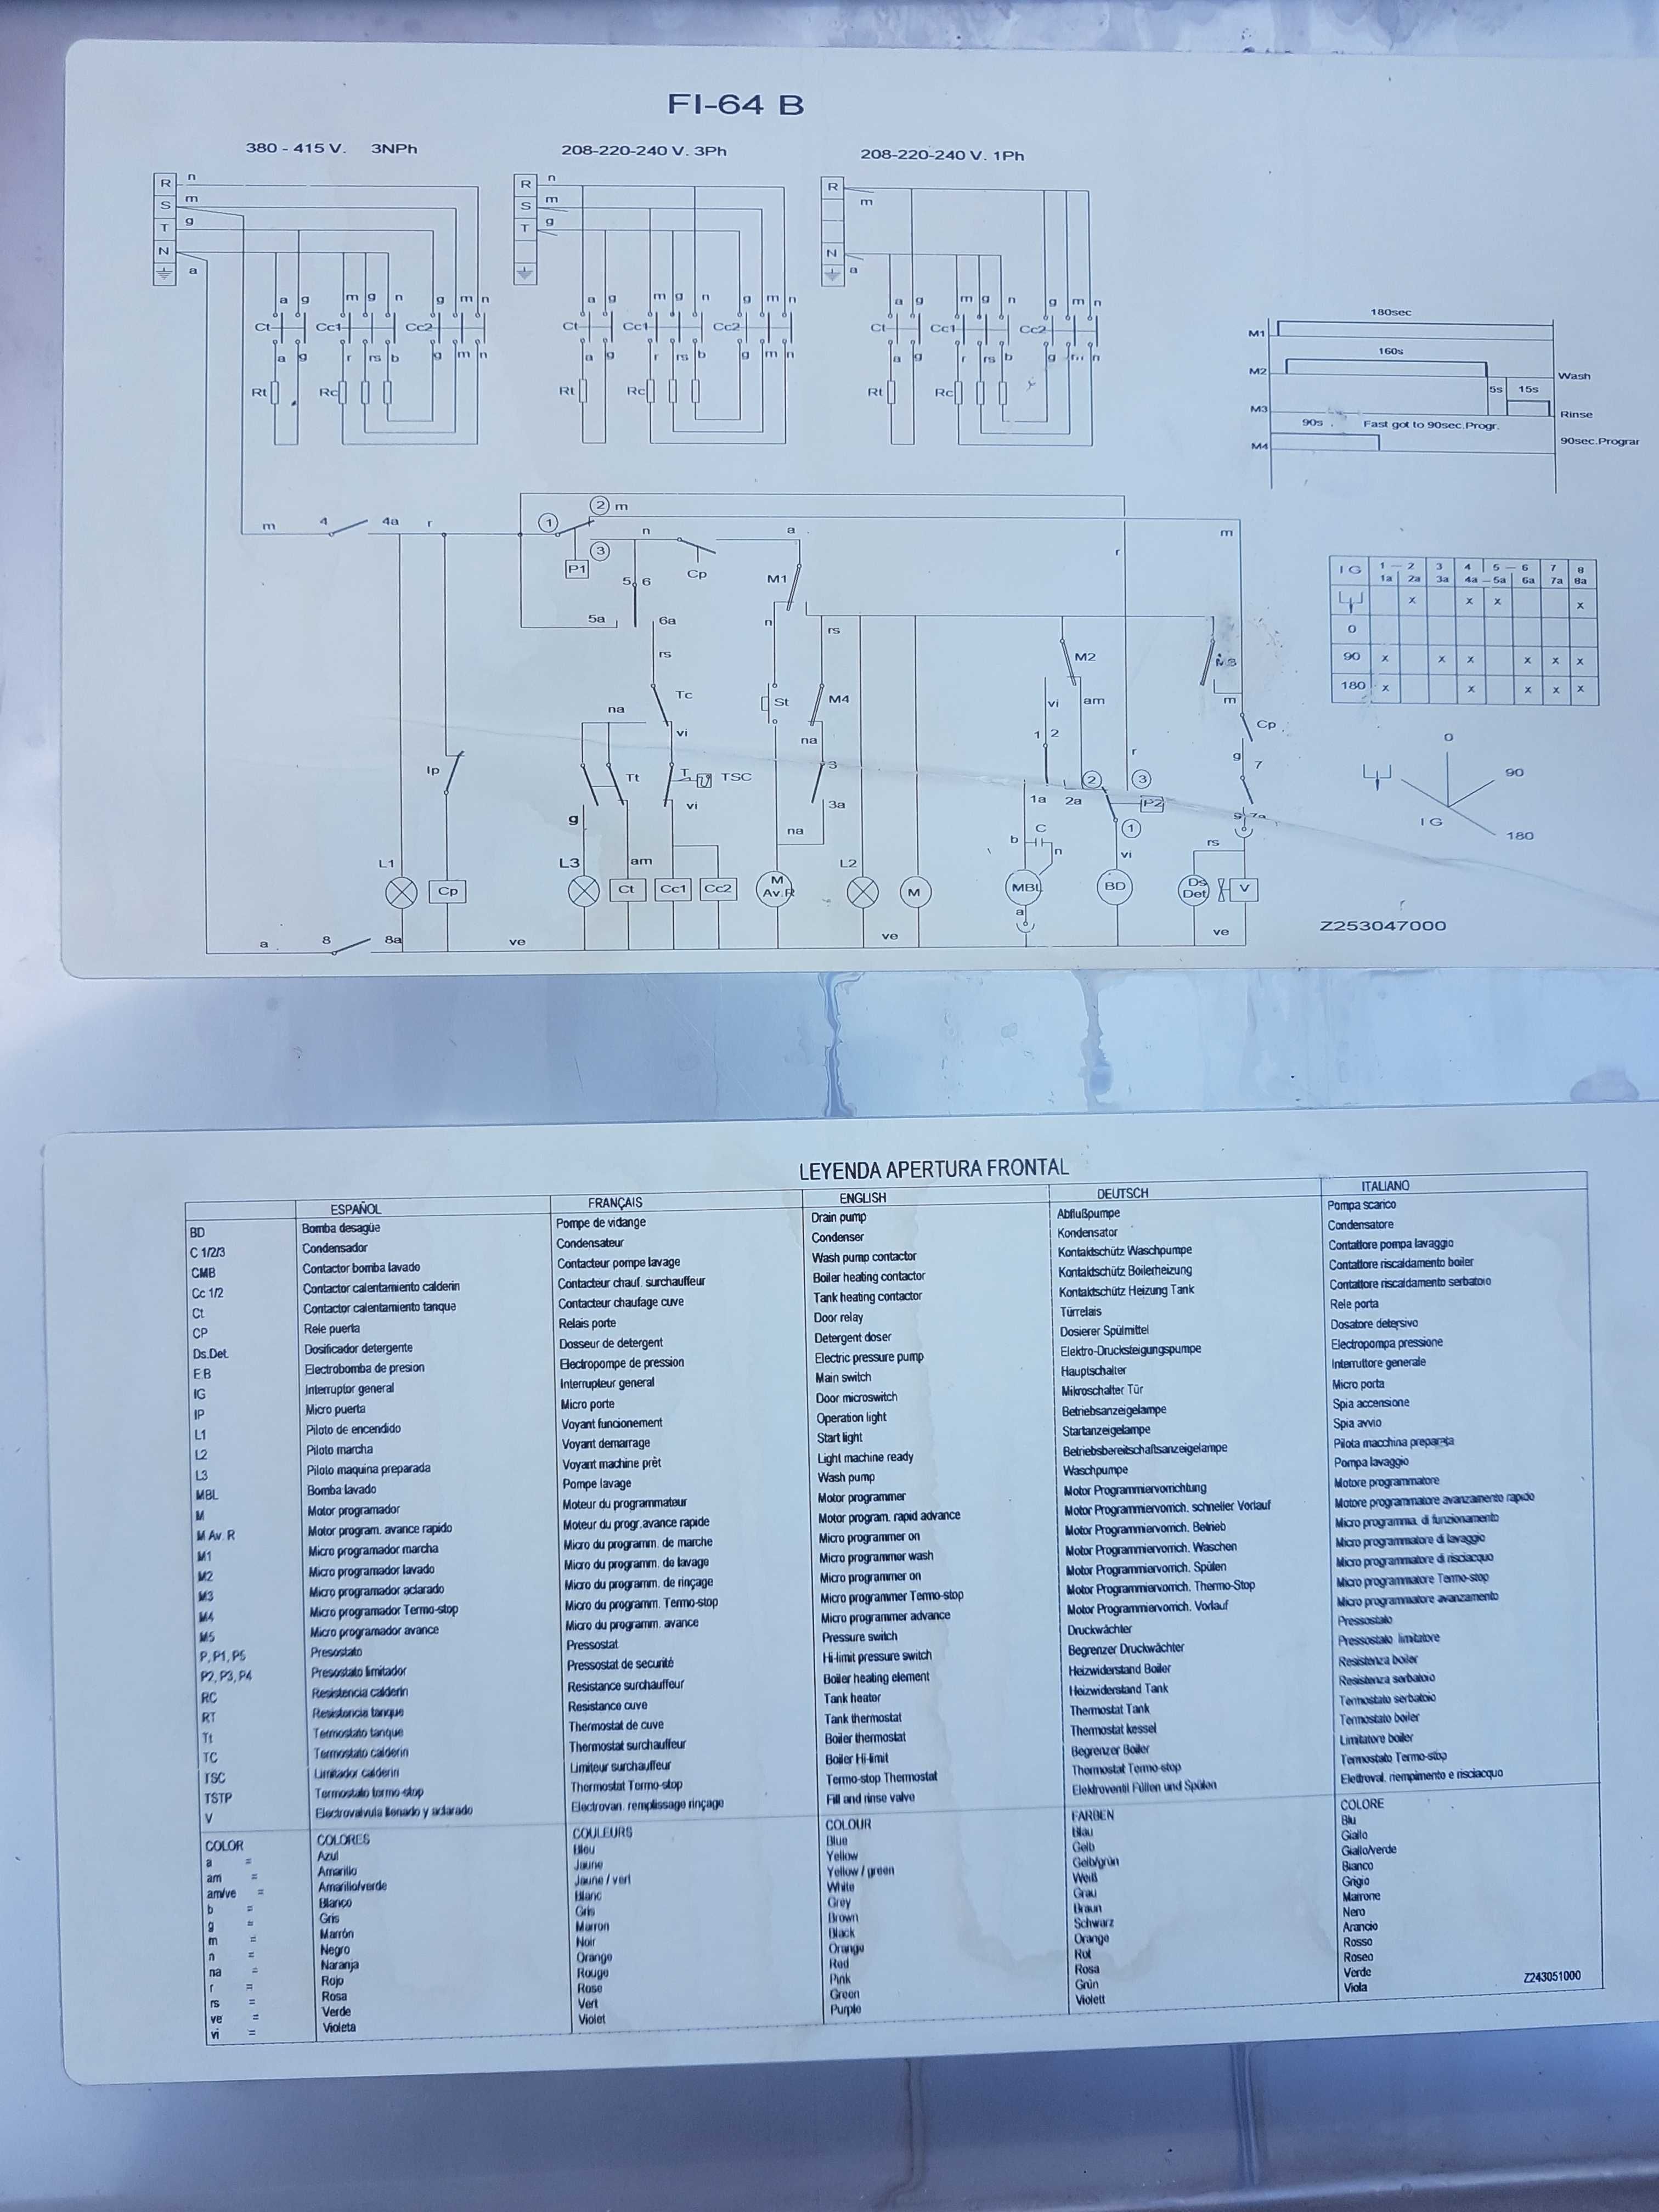 FI-64 B
380 - 415 V. 3NPh
208-220-240 V. 3Ph
208-220-240 V. 1Ph
R n
S m
T g
N
a
a g m g n g m n
Ct Cc1 Cc2
a g r rs b g m n
Rt Rc
R n
S m
T g
a g m g n g m n
Ct Cc1 Cc2
a g r rs b g m n
Rt Rc
R
m
N
a
a g m g n g m n
Ct Cc1 Cc2
a g r rs b g n
Rt Rc
180sec
M1
160s
M2
Wash
5s 15s
M3
Rinse
90s Fast got to 90sec.Progr.
M4
90sec.Prograr
m 4 4a r
1 2 m
3
P1
n
Cp
a
M1
5 6
5a 6a
n
rs
rs
r
m
M2
M3
Tc
na
vi
St
M4
na
vi am
1 2
m
Cp
Ip
Tt
T TSC
vi
3
3a
na
r
2 3
1a 2a
P2
1
g 7
7a
g
b C n
vi
rs
L1
Cp
L3
am
Ct Cc1 Cc2
M
Av.R
L2
M
MBL
a
BD
Ds
Det
V
a 8 8a ve ve ve
IG 1 - 2 3 4 5 - 6 7 8
1a 2a 3a 4a - 5a 6a 7a 8a
x x x x
0
90 x x x x x x
180 x x x x x
0
90
IG
180
Z253047000
LEYENDA APERTURA FRONTAL
ESPAÑOL FRANÇAIS ENGLISH DEUTSCH ITALIANO
BD Bomba desagüe Pompe de vidange Drain pump Abflußpumpe Pompa scarico
C 1/2/3 Condensador Condensateur Condenser Kondensator Condensatore
CMB Contactor bomba lavado Contacteur pompe lavage Wash pump contactor Kontaktschütz Waschpumpe Contattore pompa lavaggio
Cc 1/2 Contactor calentamiento calderin Contacteur chauf. surchauffeur Boiler heating contactor Kontaktschütz Boilerheizung Contattore riscaldamento boiler
Ct Contactor calentamiento tanque Contacteur chaufage cuve Tank heating contactor Kontaktschütz Heizung Tank Contattore riscaldamento serbatoio
CP Rele puerta Relais porte Door relay Türrelais Rele porta
Ds.Det. Dosificador detergente Dosseur de detergent Detergent doser Dosierer Spülmittel Dosatore detersivo
EB Electrobomba de presion Electropompe de pression Electric pressure pump Elektro-Drucksteigungspumpe Electropompa pressione
IG Interruptor general Interrupteur general Main switch Hauptschalter Interruttore generale
IP Micro puerta Micro porte Door microswitch Mikroschalter Tür Micro porta
L1 Piloto de encendido Voyant funcionement Operation light Betriebsanzeigelampe Spia accensione
L2 Piloto marcha Voyant demarrage Start light Startanzeigelampe Spia avvio
L3 Piloto maquina preparada Voyant machine prêt Light machine ready Betriebsbereitschaftsanzeigelampe Pilota macchina preparata
MBL Bomba lavado Pompe lavage Wash pump Waschpumpe Pompa lavaggio
M Motor programador Moteur du programmateur Motor programmer Motor Programmiervorrichtung Motore programmatore
M Av. R Motor program. avance rapido Moteur du progr.avance rapide Motor program. rapid advance Motor Programmiervorrich. schneller Vorlauf Motore programmatore avanzamento rapido
M1 Micro programador marcha Micro du programm. de marche Micro programmer on Motor Programmiervorrich. Betrieb Micro programma. di funzionamento
M2 Micro programador lavado Micro du programm. de lavage Micro programmer wash Motor Programmiervorrich. Waschen Micro programmatore di lavaggio
M3 Micro programador aclarado Micro du programm. de rinçage Micro programmer on Motor Programmiervorrich. Spülen Micro programmatore di risciacquo
M4 Micro programador Termo-stop Micro du programm. Termo-stop Micro programmer Termo-stop Motor Programmiervorrich. Thermo-Stop Micro programmatore Termo-stop
M5 Micro programador avance Micro du programm. avance Micro programmer advance Motor Programmiervorrich. Vorlauf Micro programmatore avanzamento
P, P1, P5 Presostato Pressostat Pressure switch Druckwächter Pressostato
P2, P3, P4 Presostato limitador Pressostat de securité Hi-limit pressure switch Begrenzer Druckwächter Pressostato limitatore
RC Resistencia calderin Resistance surchauffeur Boiler heating element Heizwiderstand Boiler Resistenza boiler
RT Resistencia tanque Resistance cuve Tank heater Heizwiderstand Tank Resistenza serbatoio
Tt Termostato tanque Thermostat de cuve Tank thermostat Thermostat Tank Termostato serbatoio
TC Termostato calderin Thermostat surchauffeur Boiler thermostat Thermostat kessel Termostato boiler
TSC Limitador calderin Limiteur surchauffeur Boiler Hi-limit Begrenzer Boiler Limitatore boiler
TSTP Termostato termo-stop Thermostat Termo-stop Termo-stop Thermostat Thermostat Termo-stop Termostato Termo-stop
V Electrovalvula llenado y aclarado Electrovan. remplissage rinçage Fill and rinse valve Elektroventil Füllen und Spülen Elettroval. riempimento e risciacquo
COLOR COLORES COULEURS COLOUR FARBEN COLORE
a = Azul Bleu Blue Blau Blu
am = Amarillo Jaune Yellow Gelb Giallo
am/ve = Amarillo/verde Jaune / vert Yellow / green Gelb/grün Giallo/verde
b = Blanco Blanc White Weiß Bianco
g = Gris Gris Grey Grau Grigio
m = Marrón Marron Brown Braun Marrone
n = Negro Noir Black Schwarz Nero
na = Naranja Orange Orange Orange Arancio
r = Rojo Rouge Red Rot Rosso
rs = Rosa Rose Pink Rosa Roseo
ve = Verde Vert Green Grün Verde
vi = Violeta Violet Purple Violett Viola
Z243051000